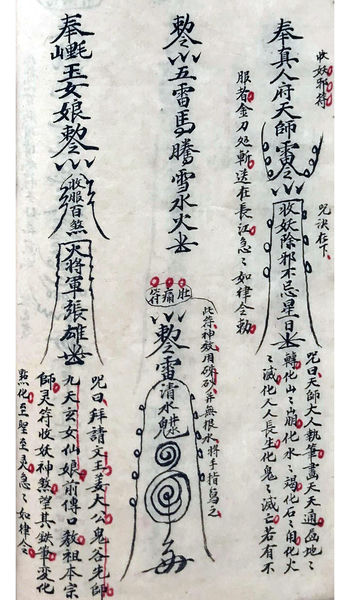 收妖邪符
奉真人府天師雷令
收妖除邪不忌星日
咒訣在下
咒曰天師大人執筆畫天天通畫地〻
轉化山〻崩化水〻竭化石〻開化火
〻滅化人人長生化鬼〻滅亡若有不
服者金刀處斬送在長江急〻如律令勅
勅令五雷馬騰雪水火
肚痛符
此符神效用硃砂
無根水將手指
勅雷清水
奉 王女娘勅令
收服百煞
火將軍張雄
咒曰拜請文王姜太公鬼谷先師
九天玄女仙娘前傳口教祖本宗
師灵符收妖神煞望其鉄筆變化
點化至聖至灵急〻如律令